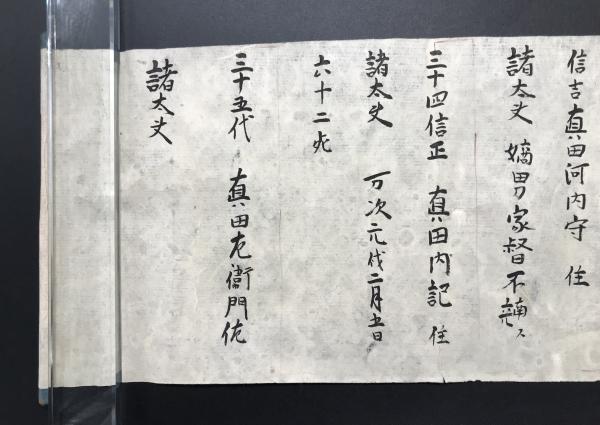 信吉 真田河内守 住
諸太夫 嫡男家督不
三十四信正 真田内記 住
諸太夫 万次元戊二月五日
六十二死
三十五代 真田左衛門佐
諸太夫